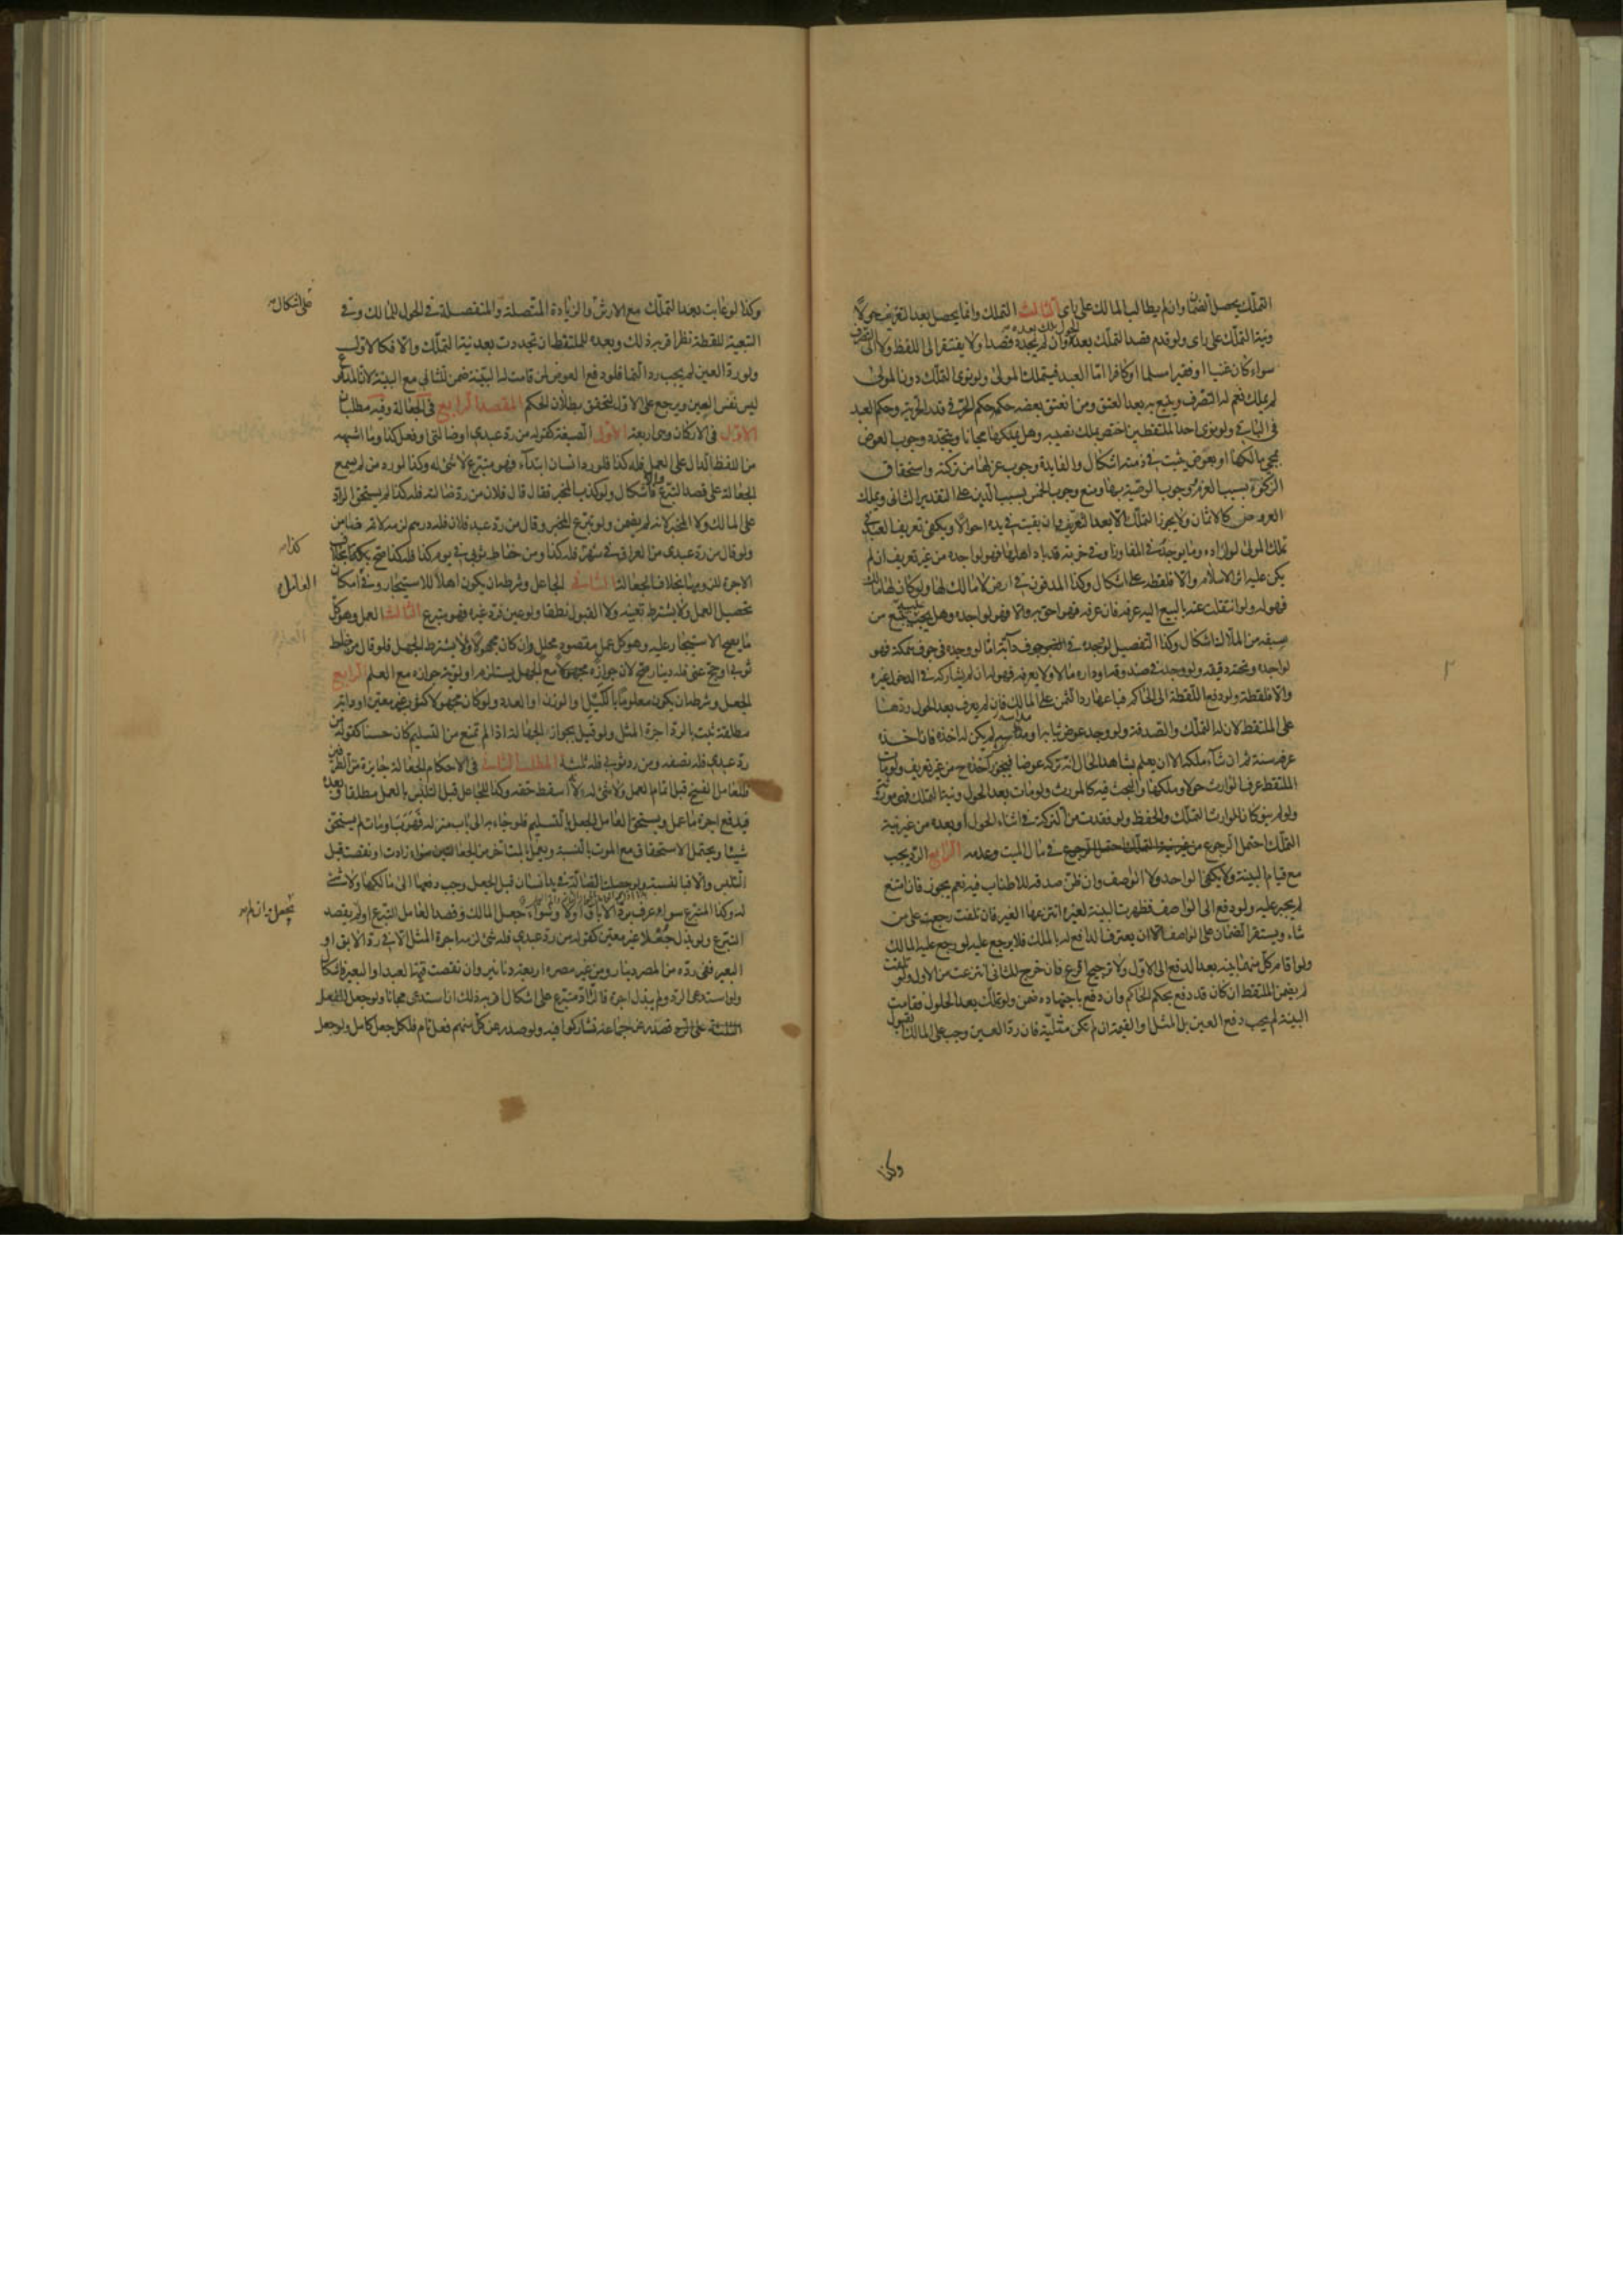 التملّك يحصل الضمان وان لم يطالب المالك على رأي الثالث التملك وانما يحصل بعد التعريف حولاً
ونية التملّك على رأي ولو قدم قصد التملّك بعد الحول ملك بعده وان لم يجدد قصدا ولا يفتقر الى اللفظ ولا الى التصرف
سواء كان غنيا او فقيرا مسلما او كافرا امّا العبد فيتملك المولى ولو نوى التملك دون المولى
لم يملك نعم له التصرف ويتبع به بعد العتق ومن انعتق بعضه حكمه حكم الحرّ في قدر الحرّية وحكم العبد
في الباقي ولو نوى احد الملتقطين اختص بملك نصيبه وهل يملكها مجانا ويتجدد وجوب العوض
بمجيء مالكها او بعوض يثبت في ذمته اشكال والفايدة وجوب عزلها من تركته واستحقاق
الزكوة بسبب الغرم ووجوب الوصية بها ومنع وجوب الخمس بسبب الدين على التقدير الثاني ويملك
العروض كالاثمان ولا يجوز التملّك الا بعد التعريف وان بقيت في يده احوالاً ويكفي تعريف العبد في
تملك المولى لو اراده وما يوجد في المفاوز او في خربة قد باد اهلها فهو لواجده من غير تعريف ان لم
يكن عليه اثر الاسلام والا فلقطة على اشكال وكذا المدفون في ارض لا مالك لها ولو كان لها مالك
فهو له ولو انتقلت عنه بالبيع اليه عرفه فان عرفه فهو احق به والا فهو لواجده وهل يجب تتبع من
سبقه من الملاك اشكال وكذا التفصيل لو وجده في جوف دابة امّا لو وجده في جوف سمكة فهو
لواجده ولو وجد في صندوقه او داره مالا ولا يعرفه فهو له ان لم يشاركه في الدخول غيره
والا فلقطة ولو دفع اللقطة الى الحاكم فباعها رد الثمن على المالك فان لم يعرف بعد الحول ردّها
على الملتقط لان له التملّك والصدقة ولو وجد عوض ثيابه او مداسه لم يكن له اخذه فان اخذه
عرفه سنة ثم ان شاء ملكه الا ان يعلم بشاهد الحال انه تركه عوضا فيجوز اخذه ح من غير تعريف ولو مات
الملتقط عرف الوارث حولا وملكها والبحث فيه كالمورث ولو مات بعد الحول ونية التملك فهي موروثة
ولو لم ينو كان للوارث التملّك والحفظ ولو فقدت من التركة في اثناء الحول او بعده من غير نية
التملّك احتمل الرجوع في مال الميت وعدمه الرابع الرّد يجب
مع قيام البينة ولا يكفي الواحد ولا الوصف وان ظنّ صدقه للاطناب فيه نعم يجوز فان امتنع
لم يجبر عليه ولو دفع الى الواصف فظهرت البينة لغيره انتزعها الغير فان تلفت رجع على من
شاء ويستقر الضمان على الواصف الا ان يعترف الدافع له بالملك فلا يرجع عليه لو رجع عليه المالك
ولو اقام كل منهما بينة بعد الدفع الى الاول ولا ترجيح اقرع فان خرج للثاني انتزعت من الاول ولو تلفت
لم يضمن الملتقط ان كان قد دفع بحكم الحاكم وان دفع باجتهاده ضمن ولو تملّك بعد الحلول فقامت
البينة لم يجب دفع العين بل المثل او القيمة ان لم تكن مثليّة فان ردّ العين وجب على المالك القبول
وكذا
وكذا لو عابت بعد التملّك مع الارش والزيادة المتّصلة والمنفصلة في الحول للمالك وفي
التبعية للقطة نظر اقربه ذلك وبعده للملتقط ان تجددت بعد نية التملّك والا فكالاول
ولو ردّ العين لم يجب رد النما فلو دفع العوض ثمّ قامت البيّنة ضمن للثاني مع البينة لان المدفوع
ليس نفس العين ويرجع على الاول لتحقق بطلان الحكم المقصد الرابع في الجعالة وفيه مطلبان
الاول في الاركان وهي اربعة الاول الصيغة كقوله من ردّ عبدي او ضالتي او فعل كذا وما اشبهه
من اللفظ الدال على العمل فله كذا فلو رد انسان ابتدآء فهو متبرّع لا شئ له وكذا لو رده من لم يسمع
الجعالة على قصد التبرّع والا فاشكال ولو كذب المخبر فقال قال فلان من ردّ ضالته فله كذا لم يستحق الراد
على المالك ولا المخبر لانه لم يضمن ولو تبرّع المخبر وقال من ردّ عبد فلان فله درهم لزمه لانه ضامن
ولو قال من ردّ عبدي من العراق في شهر فله كذا ومن خاط ثوبي في يوم فله كذا صح بخلاف
الاجرة للزومها بخلاف الجعالة الثاني الجاعل وشرطه ان يكون اهلاً للاستيجار وفي العامل امكان
تحصيل العمل ولا يشترط تعيينه ولا القبول نطقا ولو عين فردّ غيره فهو متبرع الثالث العمل وهو كل
ما يصح الاستيجار عليه وهو كل عمل مقصود محلل وان كان مجهولا ولا يشترط الجهل فلو قال من خاط
ثوبي او حج عني فله دينار صح لان جوازه مجهولا مع الجهل يستلزم اولوية جوازه مع العلم الرابع
الجعل وشرطه ان يكون معلومًا بالكيل او الوزن او العدد ولو كان مجهولا كثوب غير معين او دابة
مطلقة ثبت بالرد اجرة المثل ولو قيل بجواز الجهالة اذا لم تمنع من التسليم كان حسنا كقوله من
ردّ عبدي فله نصفه ومن رد ثوبي فله ثلثه المطلب الثاني في الاحكام الجعالة جايزة من الطرفين
فللعامل الفسخ قبل اتمام العمل ولا شئ له لانه اسقط حقه وكذا للجاعل قبل التلبس بالعمل مطلقا وبعده
فيدفع اجرة ما عمل ويستحق العامل الجعل بالتسليم فلو جاء به الى باب منزله فهرب او مات لم يستحق
شيئا ويحتمل الاستحقاق مع الموت بالنسبة ويعمل بالمتأخر من الجعالتين سواء زادت او نقصت قبل
التلبس والا فبالنسبة ولو حصلت الضالة في يد انسان قبل الجعل وجب دفعها الى مالكها ولا شئ
له وكذا المتبرع سواء عرف بردّ الاباق اولا وسواء جعل المالك وقصد العامل التبرع او لم يقصد
التبرّع ولو بذل جُعلا غير معيّن كقوله من ردّ عبدي فله شئ لزمه اجرة المثل الا في ردّ الابق او
البعير ففي ردّه من المصر دينار ومن غير مصره اربعة دنانير وان نقصت قيمة العبد او البعير فاشكال
ولو استدعى الرد ولم يبذل اجرة فالرّاد متبرّع على اشكال اقربه ذلك ان استدعى مجانا ولو جعل لفعل
فصدر عن جماعة تشاركوا فيه ولو صدر عن كلّ منهم فعل تام فلكل جعل كامل ولو جعل
على اشكال
كذا
العامل
بجعل وان لم